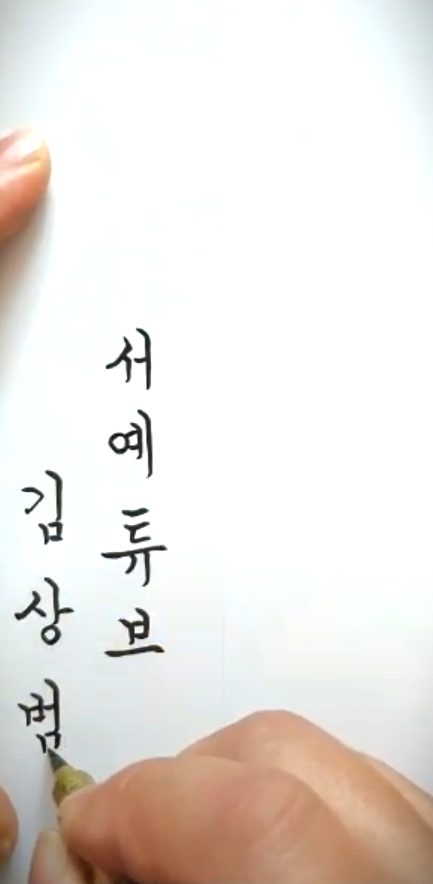 서예튜브
김상범